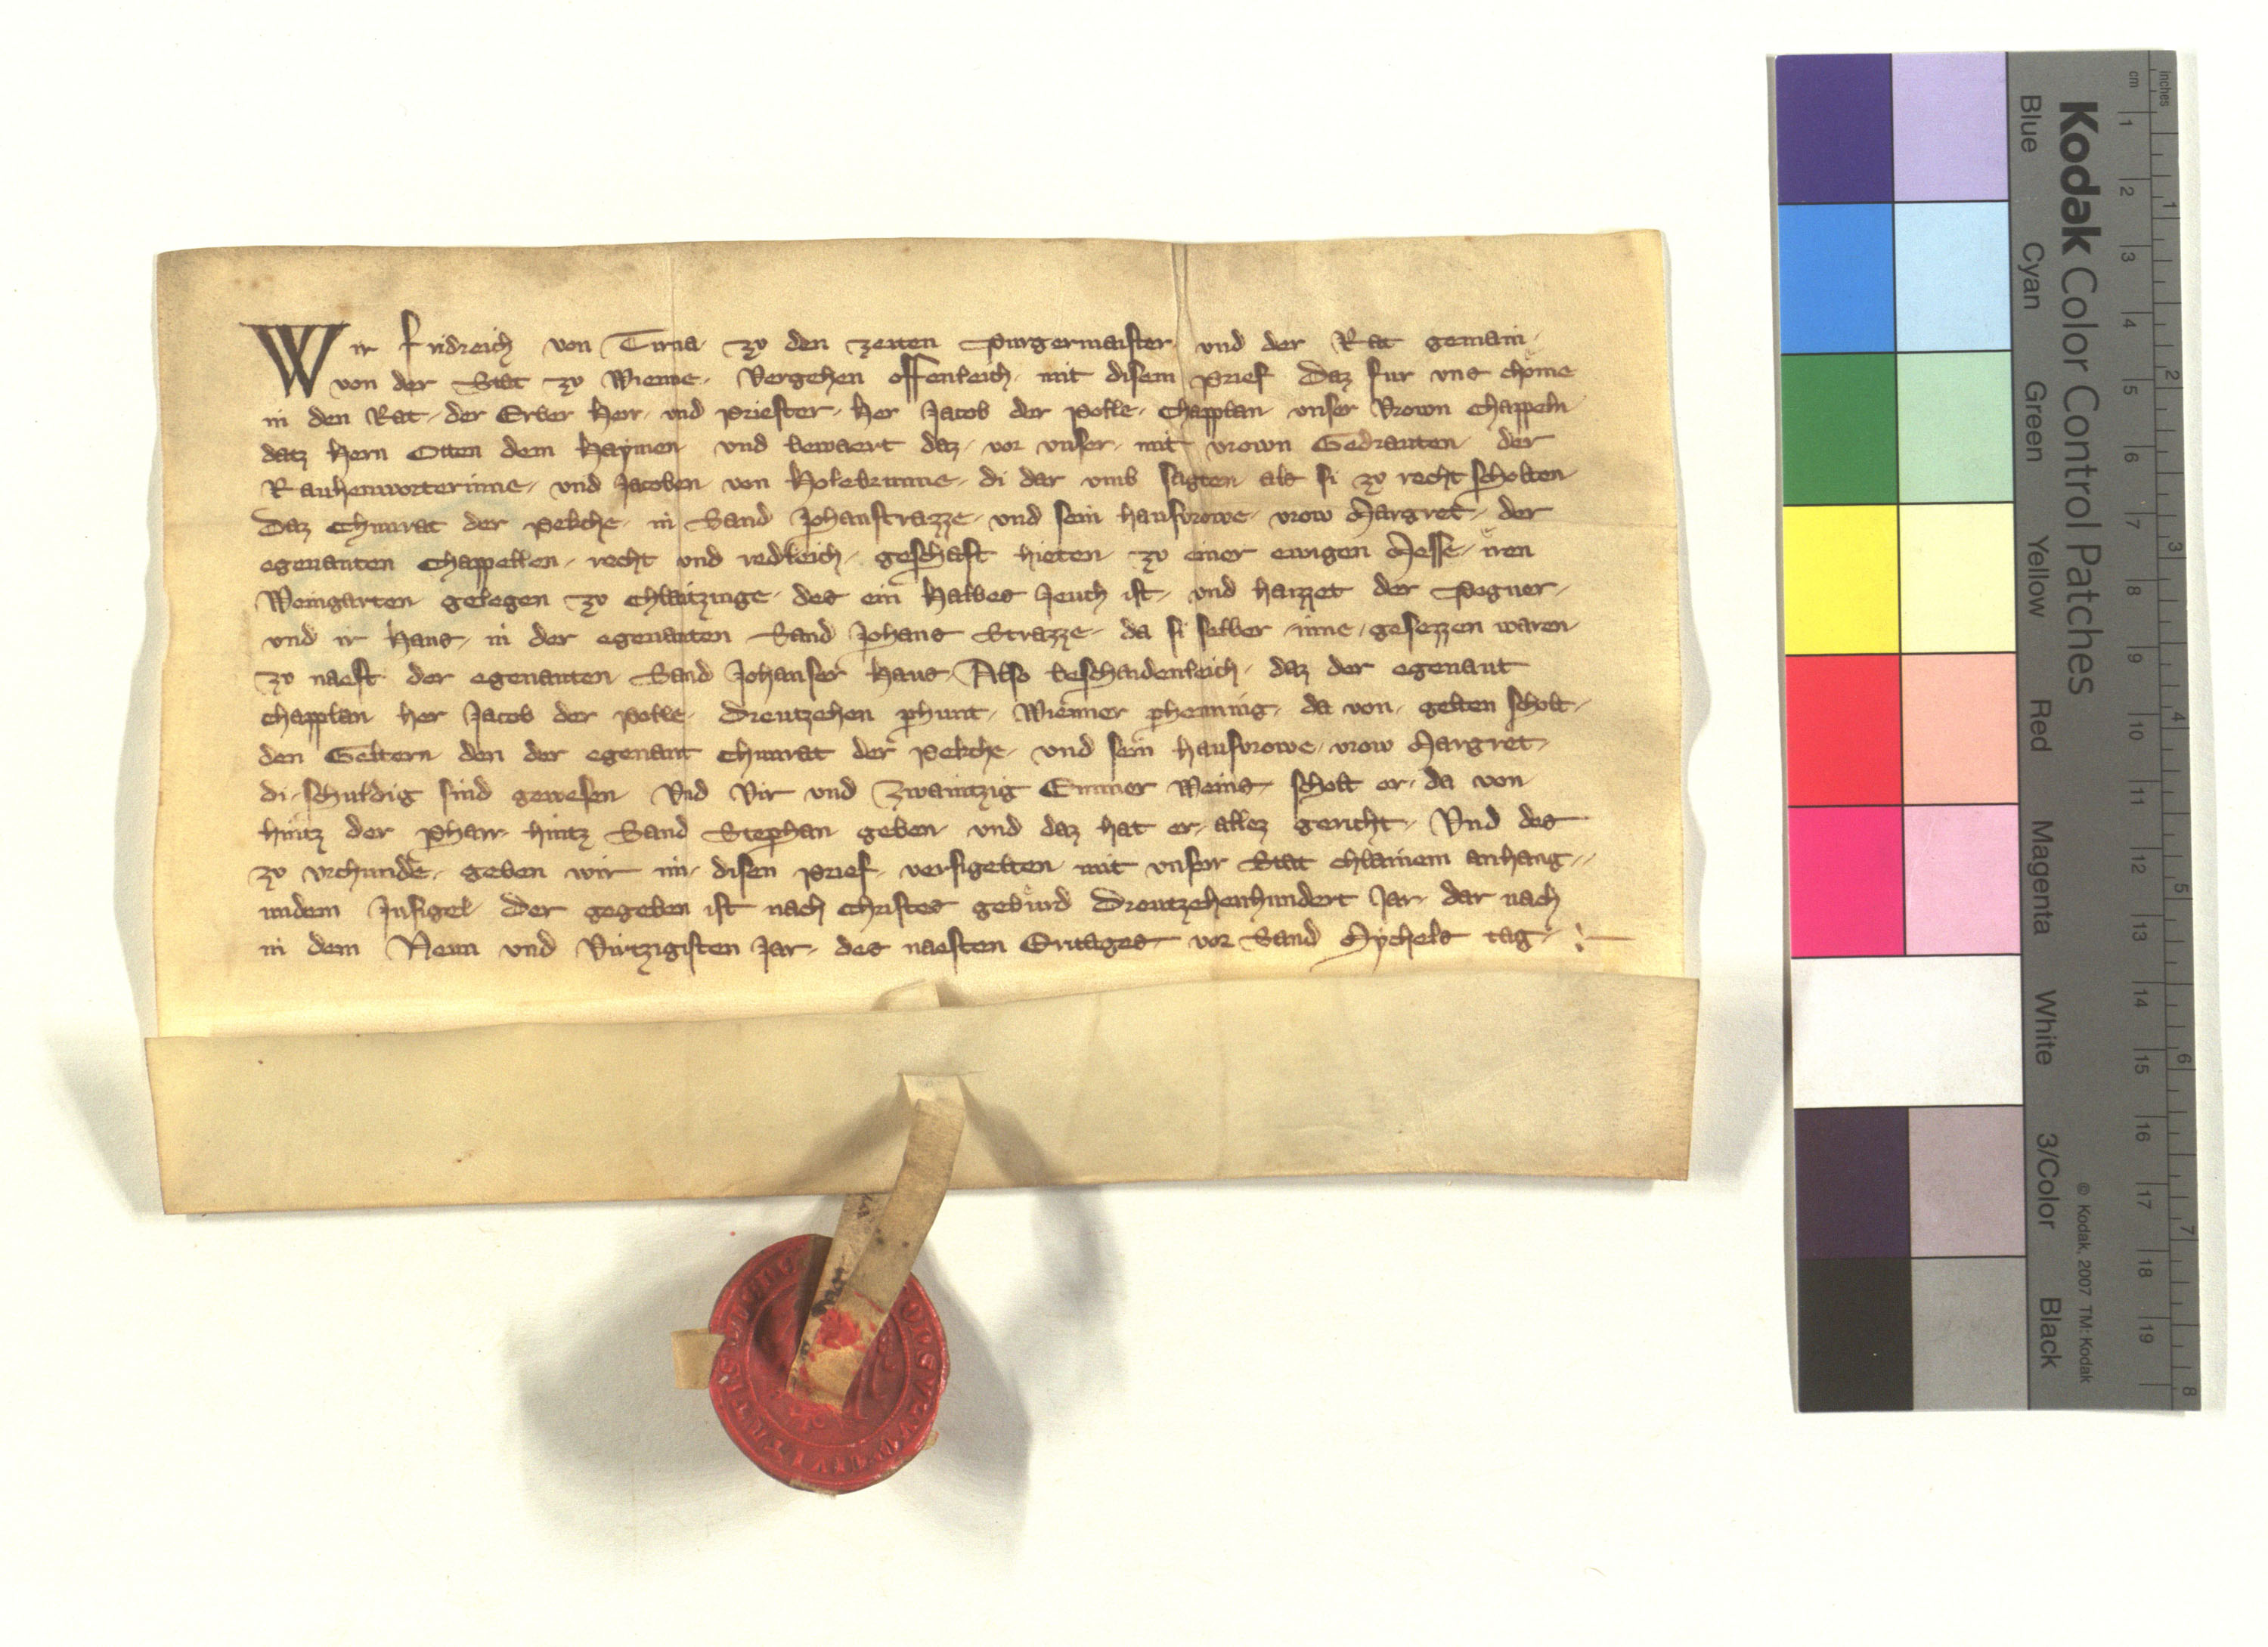 Wir fridreich von Tirna zu den zeiten purgermaister und der Rat gemain
von der Stat zu Wienne, Vergehen offenleich mit disem prief Daz fur uns chöme
in den Rat der Erber Herr und priester, her Jacob der Polle, chapplan unser Vrown chappeln
datz hern Otten dem Haymen und bewaert daz vor unser mit vrown Gedrauten der
Rauhenworterinne, und Jacoben von Holebrunne, di dar umb sagten als si zu recht scholten
Daz Chunrat der pekche, in Sand Johanstrazze, und sein hausvrowe, vrow Margret, der
egenanten Chappellen, recht und redleich, geschaft hieten zu einer ewigen Messe, iren
Weingarten gelegen zu Chlaitzinge, des ein Halbes Jeuch ist, und haizzet der Pogner,
und ir Haus, in der egenanten Sand Johans Strazze, da si selber inne gesezzen waren
zu naest der egenanten Sand Johanser Haus, Also beschaidenleich, daz der egenant
chapplan her Jacob der Polle, dreutzehen phunt, Wienner phenning, da von, gelten scholt,
den Geltern den der egenant Chunrat der pekche, und sein hausvrowe, vrow Margret,
di schuldig sind gewesen Und Vir und zwaintzig Emmer Weins, scholt er, da von
hintz der Pharr, hintz Sand Stephan geben und daz hat er, allez gericht, Und des
zu urchunde, geben wir im, disen prief, versigelten mit unser Stat chlainem anhang,,
undem Insigel Der gegeben ist nach Christes gebürd Dreutzehenhundert Jar, dar nach
in dem Neun und Virtzigisten Jar, des naesten Eritages vor Sand Mychels tag
Kodak Color Control Patches
Blue Cyan Green Yellow Red Magenta White 3/Color Black
© Kodak, 2007 TM: Kodak
cm 1 2 3 4 5 6 7 8 9 10 11 12 13 14 15 16 17 18 19
inches 1 2 3 4 5 6 7 8